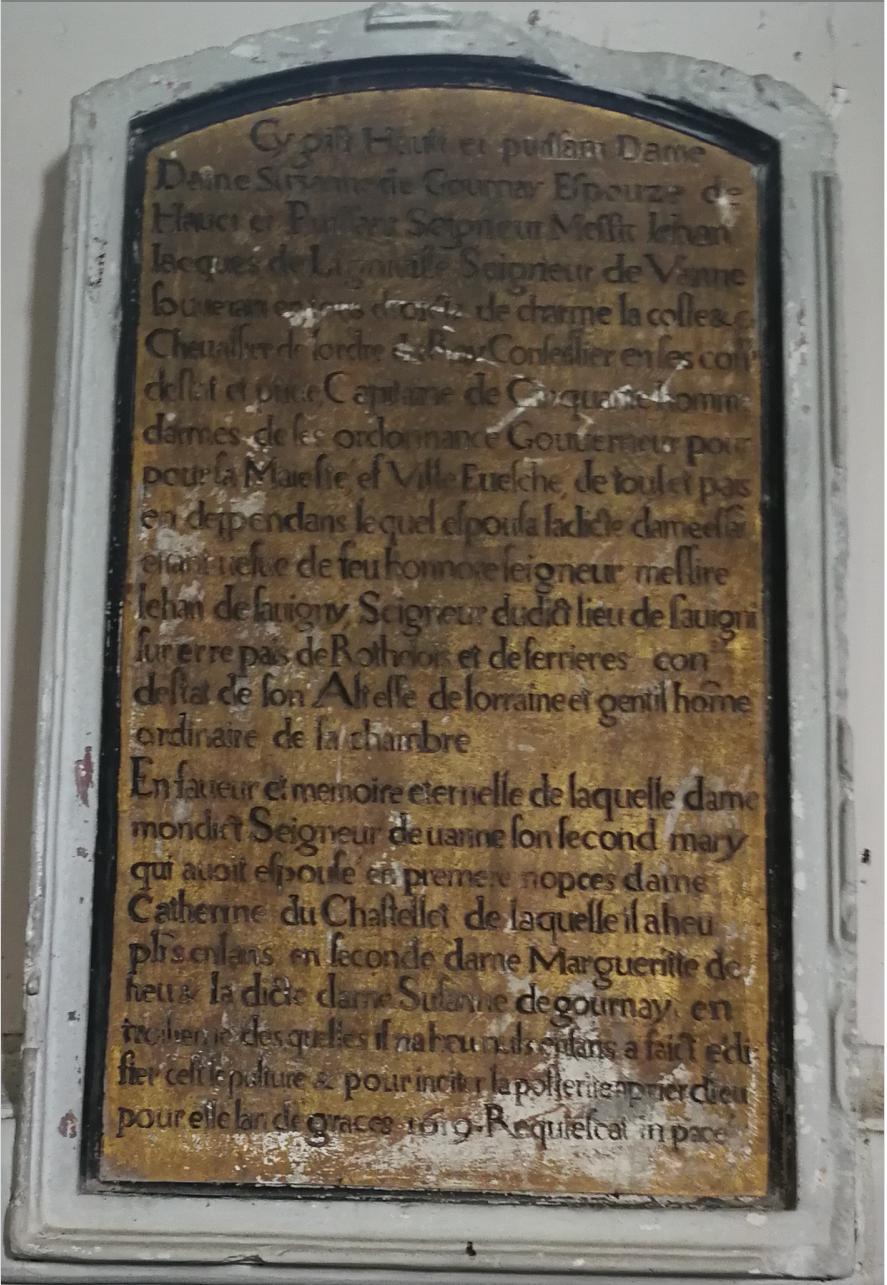 Cy gist Hault et puissant Dame
Dame Susanne de Gournay Espouze de
Hauct et Puissant Seigneur Messir Iehan
Iacques de Ligniville Seigneur de Vanne
souueran en tous droictz de charme la coste &c
Cheuallier de lordre du Roy Conseillier en ses con
destat et priue Capitaine de Cinquante homme
darmes de ses ordonnance Gouuerneur pour
pour sa Maieste es Ville Euesche, de toul et pais
en despendans lequel espousa ladicte dame
estant uefue de feu honnore seigneur messire
Iehan de sauigny Seigneur dudict lieu de sauigni
sur erre pais de Rothelois et de ferrieres con
destat de son Altesse de lorraine et gentil home
ordinaire de sa chambre
En faueur et memoire eternelle de laquelle dame
mondict Seigneur de uanne son second mary
qui auoit espouse en premere nopces dame
Catherine du Chastellet de laquelle il a heu
plrs enfans en seconde dame Margueritte de
heu & la dicte dame Susanne de gournay en
desquelles il na heu nuls enfans a faict edi
fier ceste sepulture & pour inciter la posterite a prier dieu
pour elle lan de graces 1619. Requiescat in pace